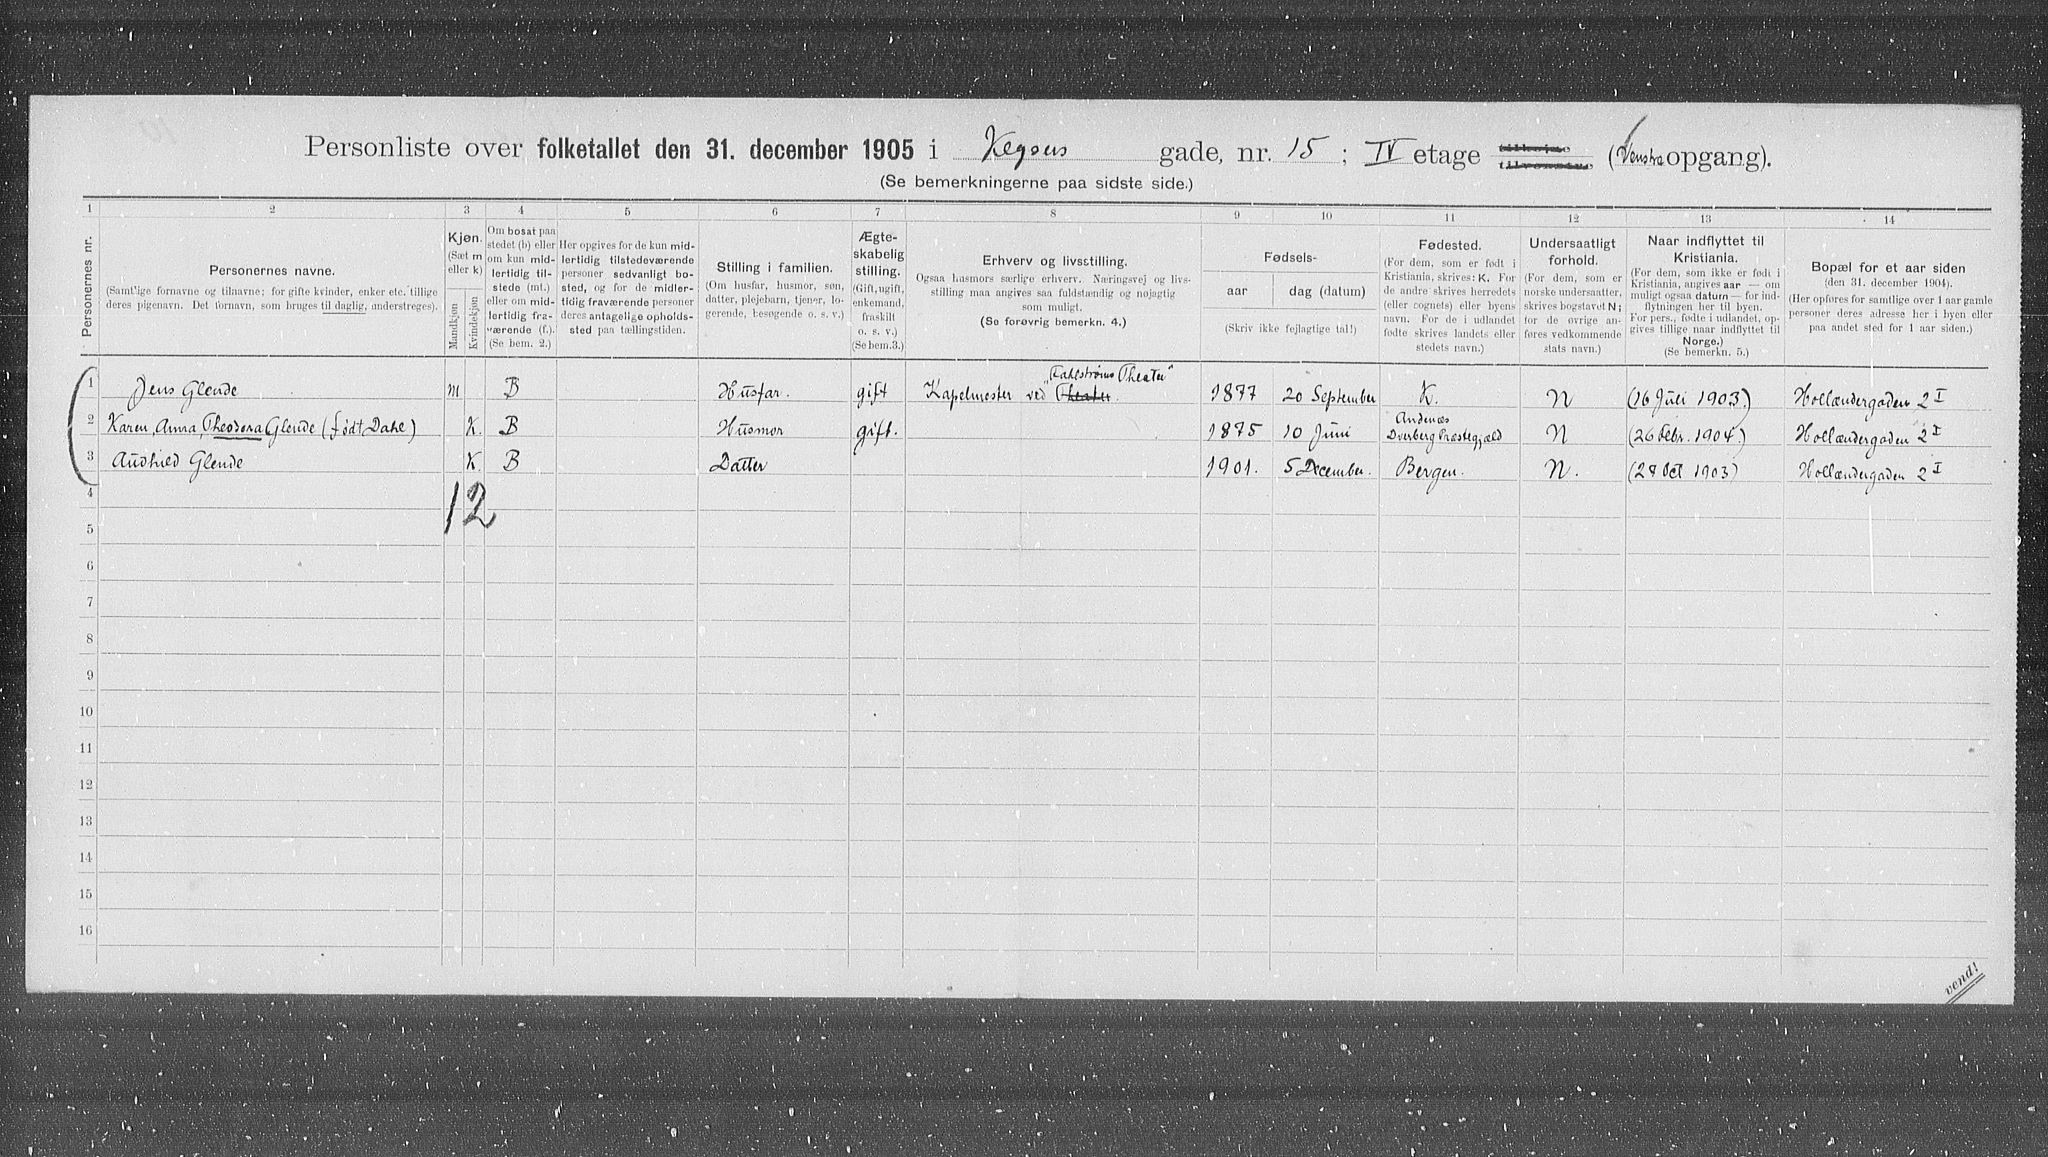 Personliste over folketallet den 31. december 1905 i Keysers gade, nr. 15 ; IV etage (Venstre opgang).
(Se bemerkningerne paa sidste side.)
1 2 3 4 5 6 7 8 9 10 11 12 13 14
Personernes nr.
Personernes navne.
(Samtlige fornavne og tilnavne; for gifte kvinder, enker etc. tillige
deres pigenavn. Det fornavn, som bruges til daglig, understreges).
Kjøn.
(Sæt m
eller k)
Mandkjøn
Kvindekjøn
Om bosat paa
stedet (b) eller
om kun mid-
lertidig til-
stede (mt.)
eller om mid-
lertidig fra-
værende (f.).
(Se bem. 2.)
Her opgives for de kun mid-
lertidig tilstedeværende
personer sedvanligt bo-
sted, og for de midler-
tidig fraværende personer
deres antagelige opholds-
sted paa tællingstiden.
Stilling i familien.
(Om husfar, husmor, søn,
datter, plejebarn, tjener, lo-
gerende, besøgende o. s. v.)
Ægte-
skabelig
stilling.
(Gift, ugift,
enkemand,
fraskilt
o. s. v.)
(Se bem.3.)
Erhverv og livsstilling.
Ogsaa hasmors særlige erhverv. Næringsvej og livs-
stilling maa angives saa fuldstændig og nøjagtig
som muligt.
(Se forøvrig bemerkn. 4.)
Fødsels-
aar dag (datum)
(Skriv ikke fejlagtige tal!)
Fødested.
(For dem, som er født i
Kristiania, skrives: K. For
de andre skrives herredets
(eller cognets) eller byens
navn. For de i udlandet
fødte skrives landets eller
stedets navn.)
Undersaatligt
forhold.
(For dem, som er
norske undersaatter,
skrives bogstavet N;
for de øvrige an-
føres vedkommende
stats navn.)
Naar indflyttet til
Kristiania.
(For dem, som ikke er født i
Kristiania, angives aar — om
muligt ogsaa datum — for ind-
flytningen her til byen.
For pers., fødte i udlandet, op-
gives tillige naar indflyttet til
Norge.)
(Se bemerkn. 5.)
Bopæl for et aar siden
(den 31. december 1904).
(Her opføres for samtlige over 1 aar gamle
personer deres adresse her i byen eller
paa andet sted for 1 aar siden.)
1 Jens Glende m B Husfar. gift Kapelmester ved "Fahlstrøms Theater" Theater. 1877 20 September K. N (16 Juli 1903.) Hollændergaden 2 I
2 Karen, Anna, Theodora Glende (født Dahl) K. B Husmor gift. 1875 10 Juni Andenæs Dverberg Præstegjæld N (26 Febr. 1904.) Hollændergaden 2 I
3 Audhild Glende K. B Datter 1901. 5 December. Bergen. N. (28 Oct 1903) Hollændergaden 2 I
12
4
5
6
7
8
9
10
11
12
13
14
15
16
vend!